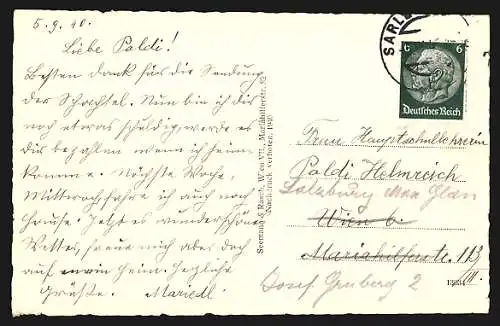 5. 9. 40.
Liebe Poldi!
Besten Dank für die Sendung
der Schachtel. Nun bin ich dir
noch etwas schuldig, werde es
dir bezahlen wenn ich heim
komme. Nächste Woche,
Mittwoch fahre ich auch nach
Hause. Jetzt ist wunderschönes
Wetter, freue mich aber doch
auf heim. Herzliche
Grüße. Mariedl
Seemann & Rauch, Wien VII., Mariahilferstr. 92
Nachdruck verboten. 1940
SARL
6 6
Deutsches Reich
Frau Hauptschullehrerin
Poldi Helmreich
Salzburg Max Glan
Wien 6.
Mariahilferstr. 113
III.
Josef Gruberg 2